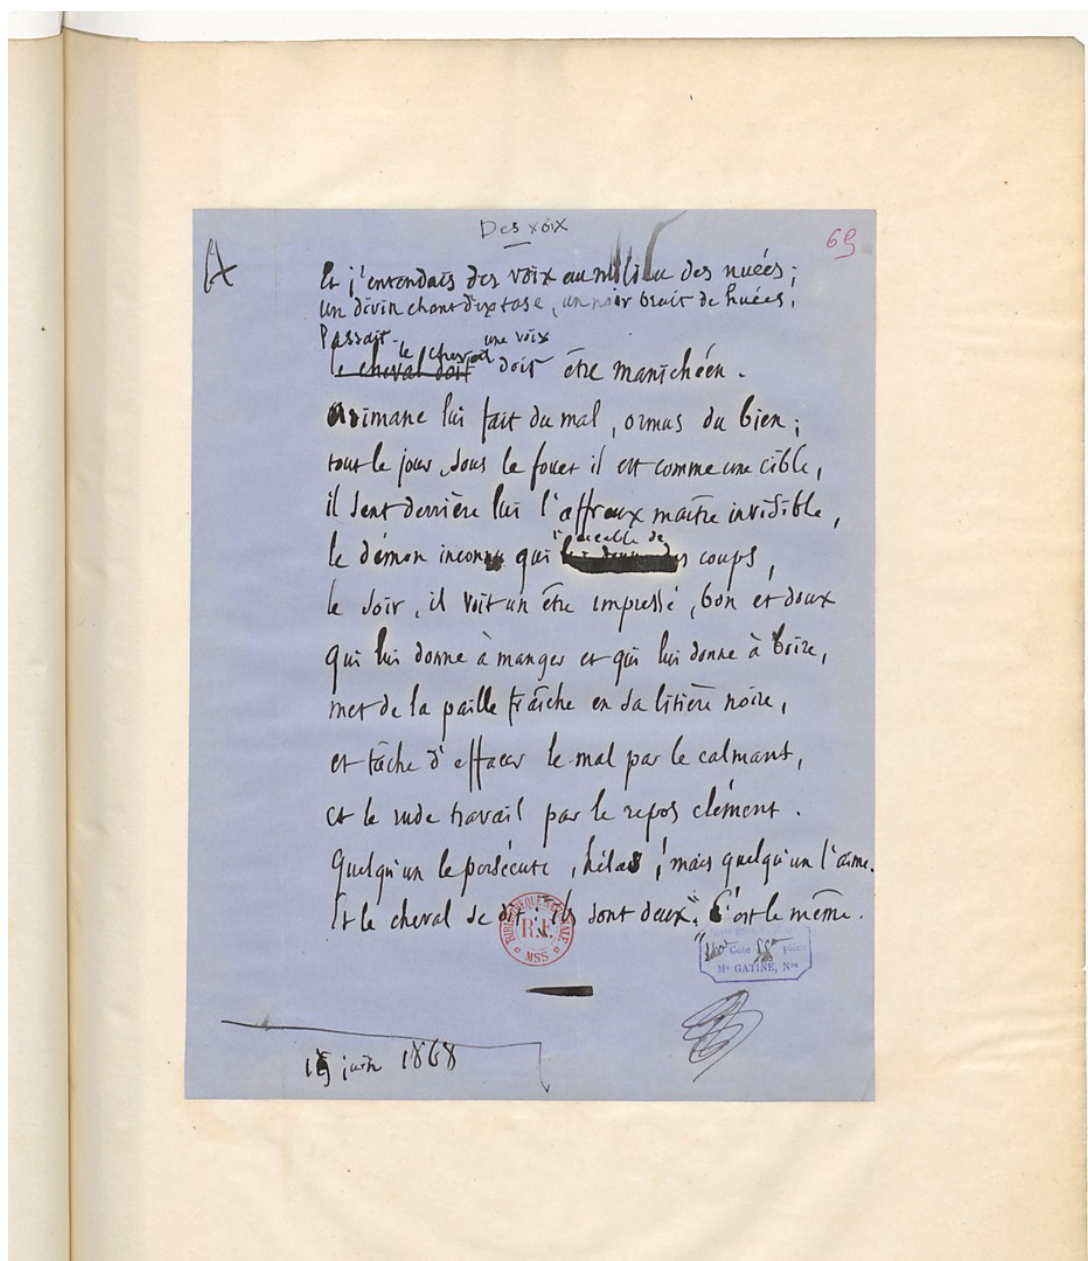 Des voix
69
A
Et j'entendais des voix au milieu des nuées ;
un divin chant d'extase, un noir bruit de huées,
Passait. - une voix
le cheval
le cheval doit doit être manichéen.
Arimane lui fait du mal, ormus du bien ;
tout le jour, sous le fouet il est comme une cible,
il sent derrière lui l'affreux maître invisible,
l'accable de
le démon inconnu qui coups,
le soir, il voit un être empressé, bon et doux
qui lui donne à manger et qui lui donne à boire,
met de la paille fraîche en sa litière noire,
et tâche d'effacer le mal par le calmant,
et le rude travail par le repos clément.
Quelqu'un le persécute, hélas ! mais quelqu'un l'aime.
Et le cheval se dit : "ils sont deux". C'est le même.
BIBLIOTHEQUE NATIONALE
R.F.
MSS
Cote pièce
Me GATINE, Nre
juin 1868